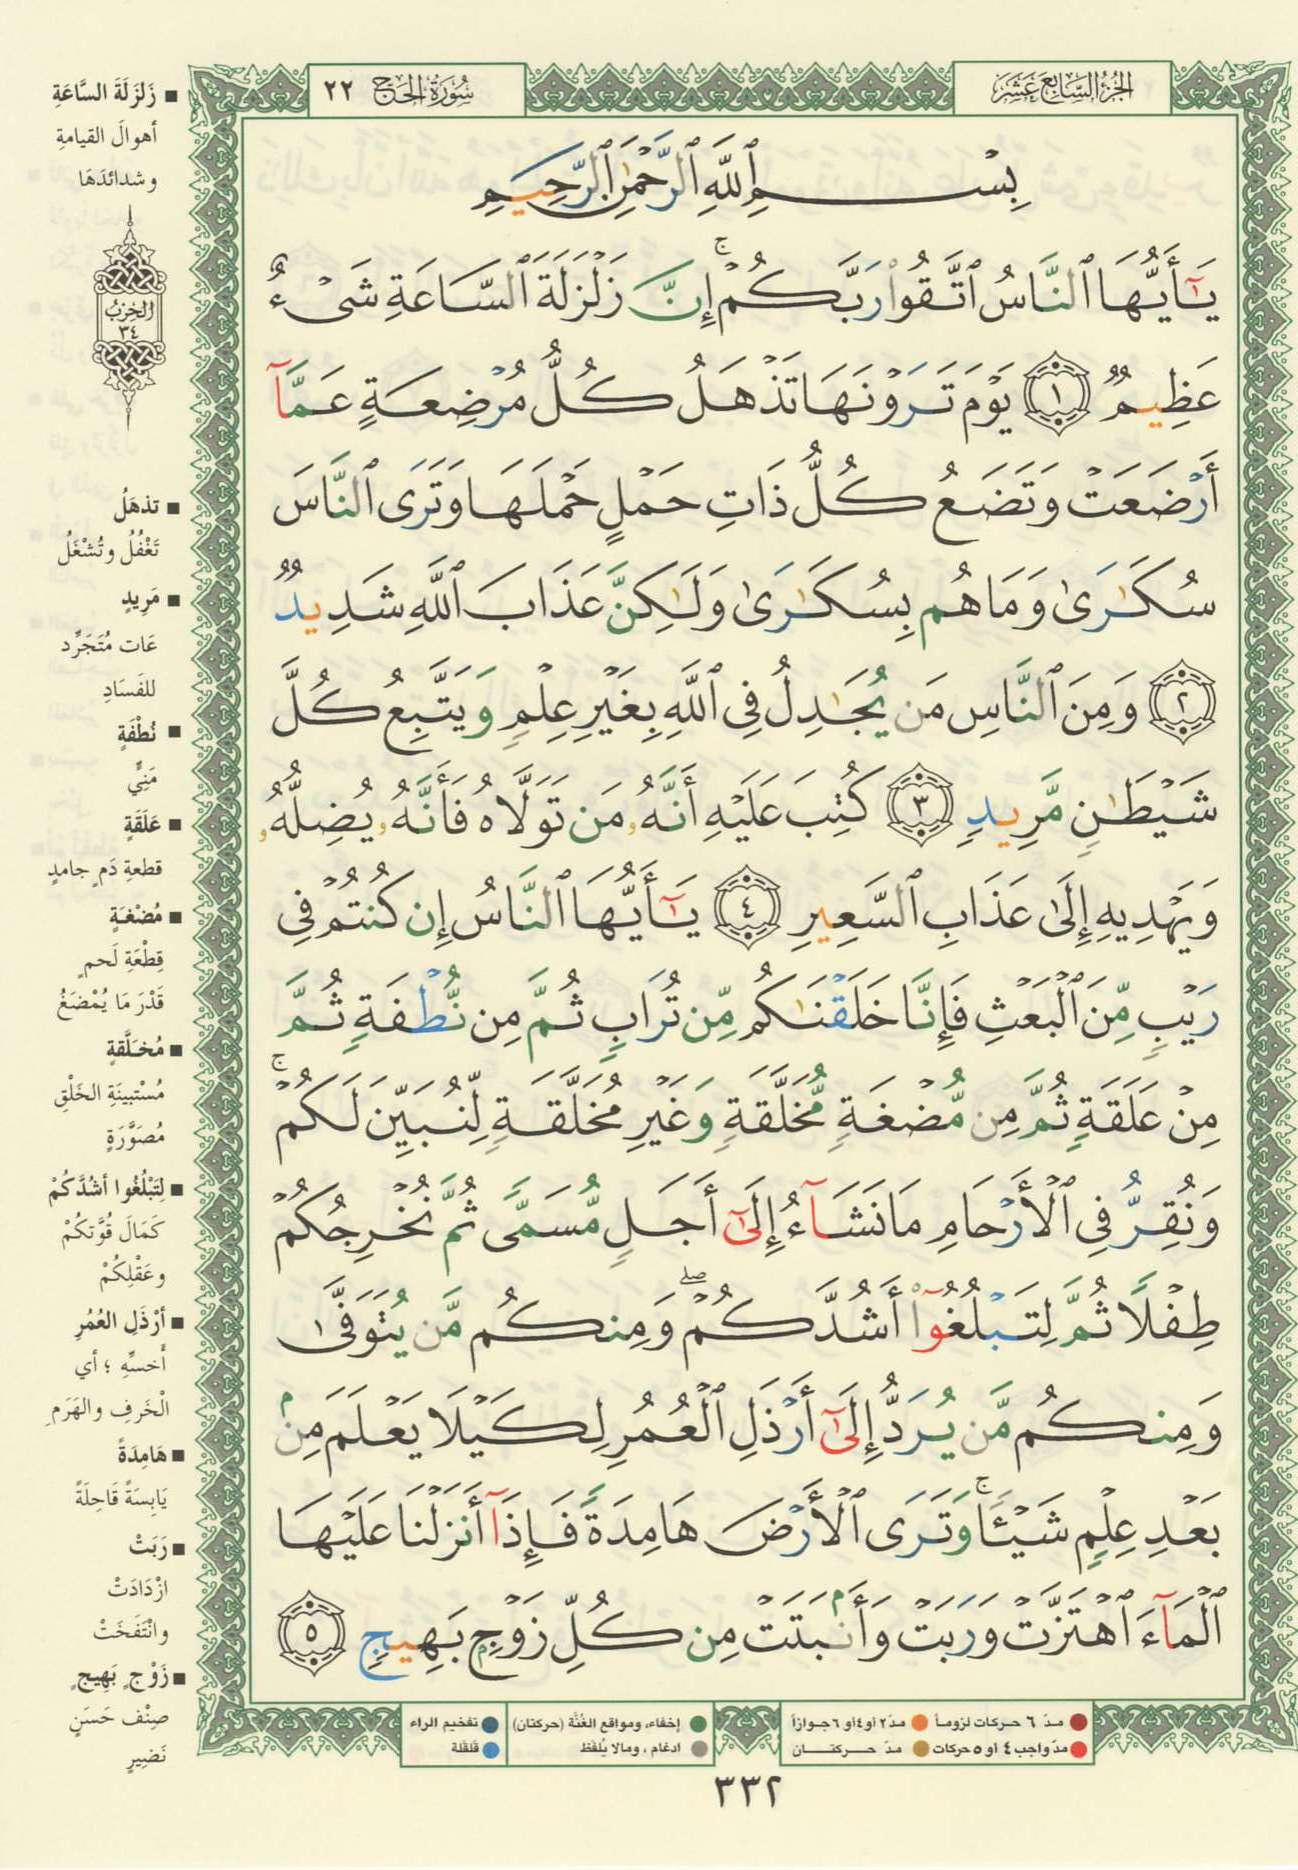 الجزء السابع عشر
سورة الحج ٢٢
بِسْمِ ٱللَّهِ ٱلرَّحْمَٰنِ ٱلرَّحِيمِ
يَٰٓأَيُّهَا ٱلنَّاسُ ٱتَّقُوا۟ رَبَّكُمْ ۚ إِنَّ زَلْزَلَةَ ٱلسَّاعَةِ شَىْءٌ
عَظِيمٌ ١ يَوْمَ تَرَوْنَهَا تَذْهَلُ كُلُّ مُرْضِعَةٍ عَمَّآ
أَرْضَعَتْ وَتَضَعُ كُلُّ ذَاتِ حَمْلٍ حَمْلَهَا وَتَرَى ٱلنَّاسَ
سُكَٰرَىٰ وَمَا هُم بِسُكَٰرَىٰ وَلَٰكِنَّ عَذَابَ ٱللَّهِ شَدِيدٌ
٢ وَمِنَ ٱلنَّاسِ مَن يُجَٰدِلُ فِى ٱللَّهِ بِغَيْرِ عِلْمٍ وَيَتَّبِعُ كُلَّ
شَيْطَٰنٍ مَّرِيدٍ ٣ كُتِبَ عَلَيْهِ أَنَّهُۥ مَن تَوَلَّاهُ فَأَنَّهُۥ يُضِلُّهُۥ
وَيَهْدِيهِ إِلَىٰ عَذَابِ ٱلسَّعِيرِ ٤ يَٰٓأَيُّهَا ٱلنَّاسُ إِن كُنتُمْ فِى
رَيْبٍ مِّنَ ٱلْبَعْثِ فَإِنَّا خَلَقْنَٰكُم مِّن تُرَابٍ ثُمَّ مِن نُّطْفَةٍ ثُمَّ
مِنْ عَلَقَةٍ ثُمَّ مِن مُّضْغَةٍ مُّخَلَّقَةٍ وَغَيْرِ مُخَلَّقَةٍ لِّنُبَيِّنَ لَكُمْ ۚ
وَنُقِرُّ فِى ٱلْأَرْحَامِ مَا نَشَآءُ إِلَىٰٓ أَجَلٍ مُّسَمًّى ثُمَّ نُخْرِجُكُمْ
طِفْلًا ثُمَّ لِتَبْلُغُوٓا۟ أَشُدَّكُمْ ۖ وَمِنكُم مَّن يُتَوَفَّىٰ
وَمِنكُم مَّن يُرَدُّ إِلَىٰٓ أَرْذَلِ ٱلْعُمُرِ لِكَيْلَا يَعْلَمَ مِنۢ
بَعْدِ عِلْمٍ شَيْـًٔا ۚ وَتَرَى ٱلْأَرْضَ هَامِدَةً فَإِذَآ أَنزَلْنَا عَلَيْهَا
ٱلْمَآءَ ٱهْتَزَّتْ وَرَبَتْ وَأَنۢبَتَتْ مِن كُلِّ زَوْجٍۭ بَهِيجٍ ٥
■ زَلْزَلَةَ السَّاعَةِ
أهوالَ القيامةِ
وشدائدَهَا
الحزب
٣٤
■ تذهَلُ
تَغْفُلُ وتُشْغَلُ
■ مَرِيدٍ
عَات مُتَجَرِّد
للفَسَادِ
■ نُطْفَةٍ
مَنِيٍّ
■ عَلَقَةٍ
قطعةِ دَمٍ جامدٍ
■ مُضْغَةٍ
قِطْعَةِ لَحمٍ
قَدْرَ مَا يُمْضَغُ
■ مُخَلَّقةٍ
مُسْتبينَةِ الخَلْقِ
مُصَوَّرَةٍ
■ لِتَبْلُغُوا أشُدَّكُمْ
كَمَالَ قُوَّتكُمْ
وعَقْلِكُمْ
■ أرْذَلِ العُمُرِ
أَخسِّهِ ؛ أي
الْخَرفِ والهَرَمِ
■ هَامِدَةً
يَابِسَةً قَاحِلَةً
■ رَبَتْ
ازْدَادَتْ
وانْتَفَخَتْ
■ زَوْجٍ بَهِيجٍ
صِنْف حَسَنٍ
نَضِيرٍ
مدّ ٦ حركات لزوماً مدّ ٢ أو ٤ أو ٦ جوازاً إخفاء، ومواقع الغُنَّة (حركتان) تفخيم الراء
مدّ واجب ٤ أو ٥ حركات مدّ حركتان ادغام، ومالا يُلفَظ قلقلة
٣٣٢